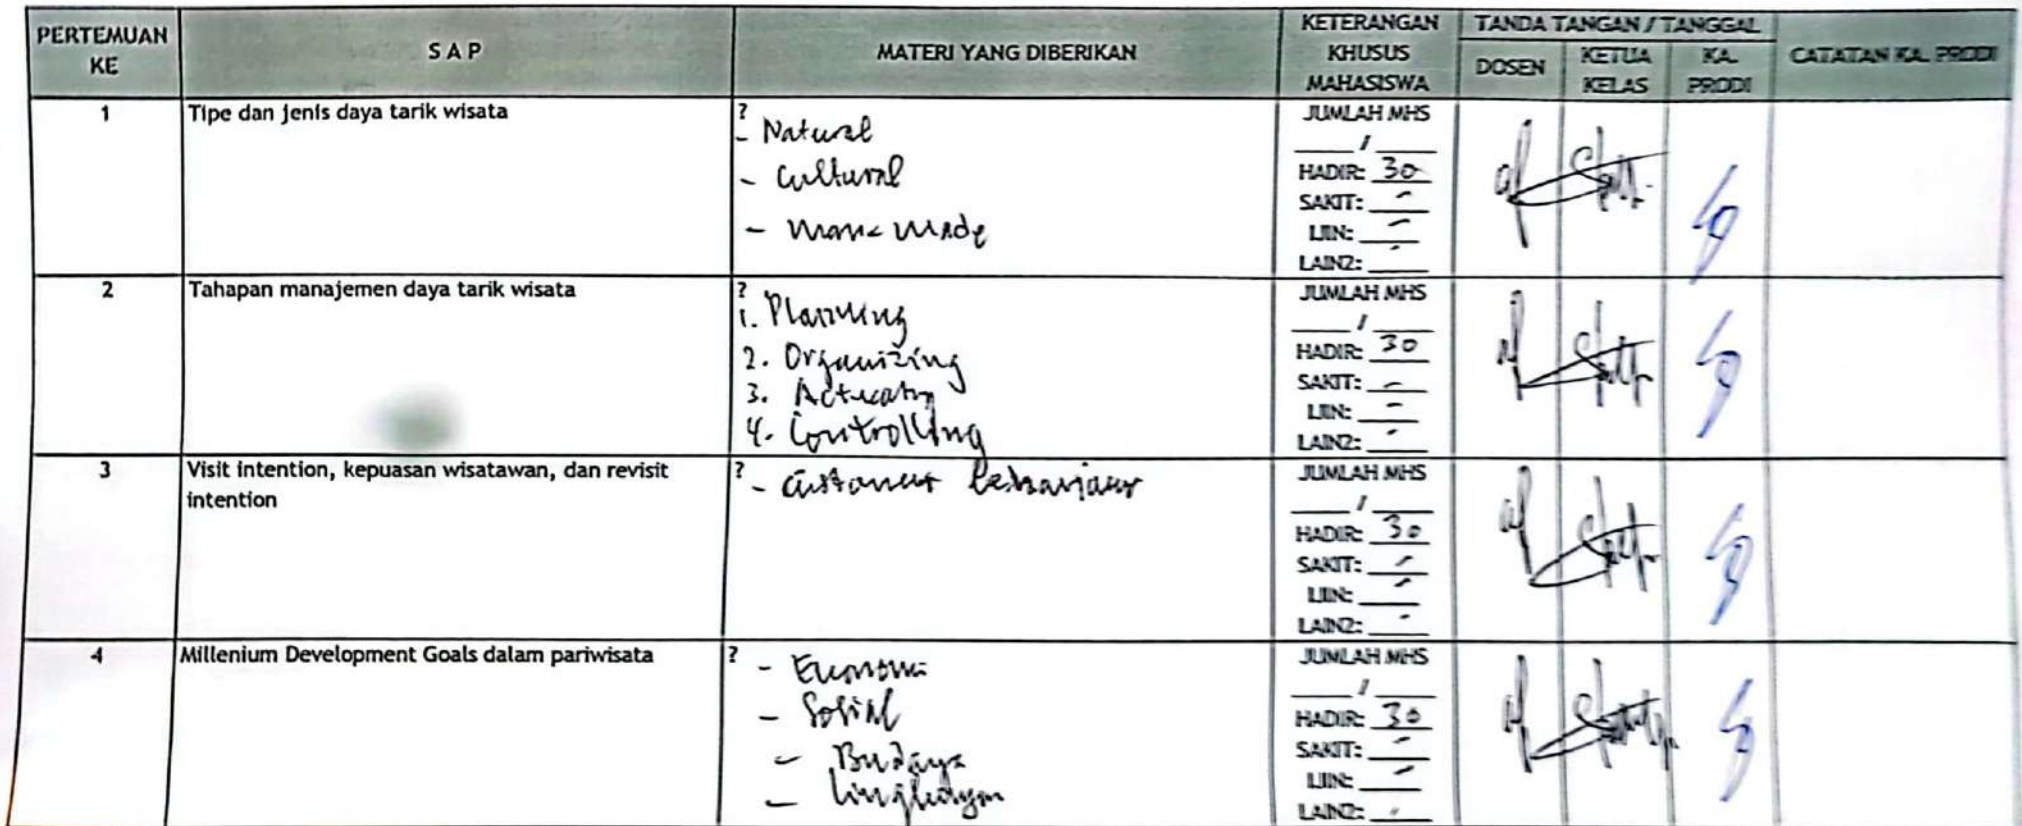 PERTEMUAN KE
S A P
MATERI YANG DIBERIKAN
KETERANGAN KHUSUS MAHASISWA
TANDA TANGAN / TANGGAL
DOSEN
KETUA KELAS
KA. PRODI
CATATAN KA. PRODI
1
Tipe dan jenis daya tarik wisata
?
- Natural
- Cultural
- Man Made
JUMLAH MHS
___ / ___
HADIR: 30
SAKIT: -
IJIN: -
LAIN2: -
2
Tahapan manajemen daya tarik wisata
?
1. Planning
2. Organizing
3. Actuatng
4. Controlling
JUMLAH MHS
___ / ___
HADIR: 30
SAKIT: -
IJIN: -
LAIN2: -
3
Visit intention, kepuasan wisatawan, dan revisit
intention
?
- Customer behaviour
JUMLAH MHS
___ / ___
HADIR: 30
SAKIT: -
IJIN: -
LAIN2: -
4
Millenium Development Goals dalam pariwisata
?
- Ekonomi
- Sosial
- Budaya
- Lingkungan
JUMLAH MHS
___ / ___
HADIR: 30
SAKIT: -
IJIN: -
LAIN2: -